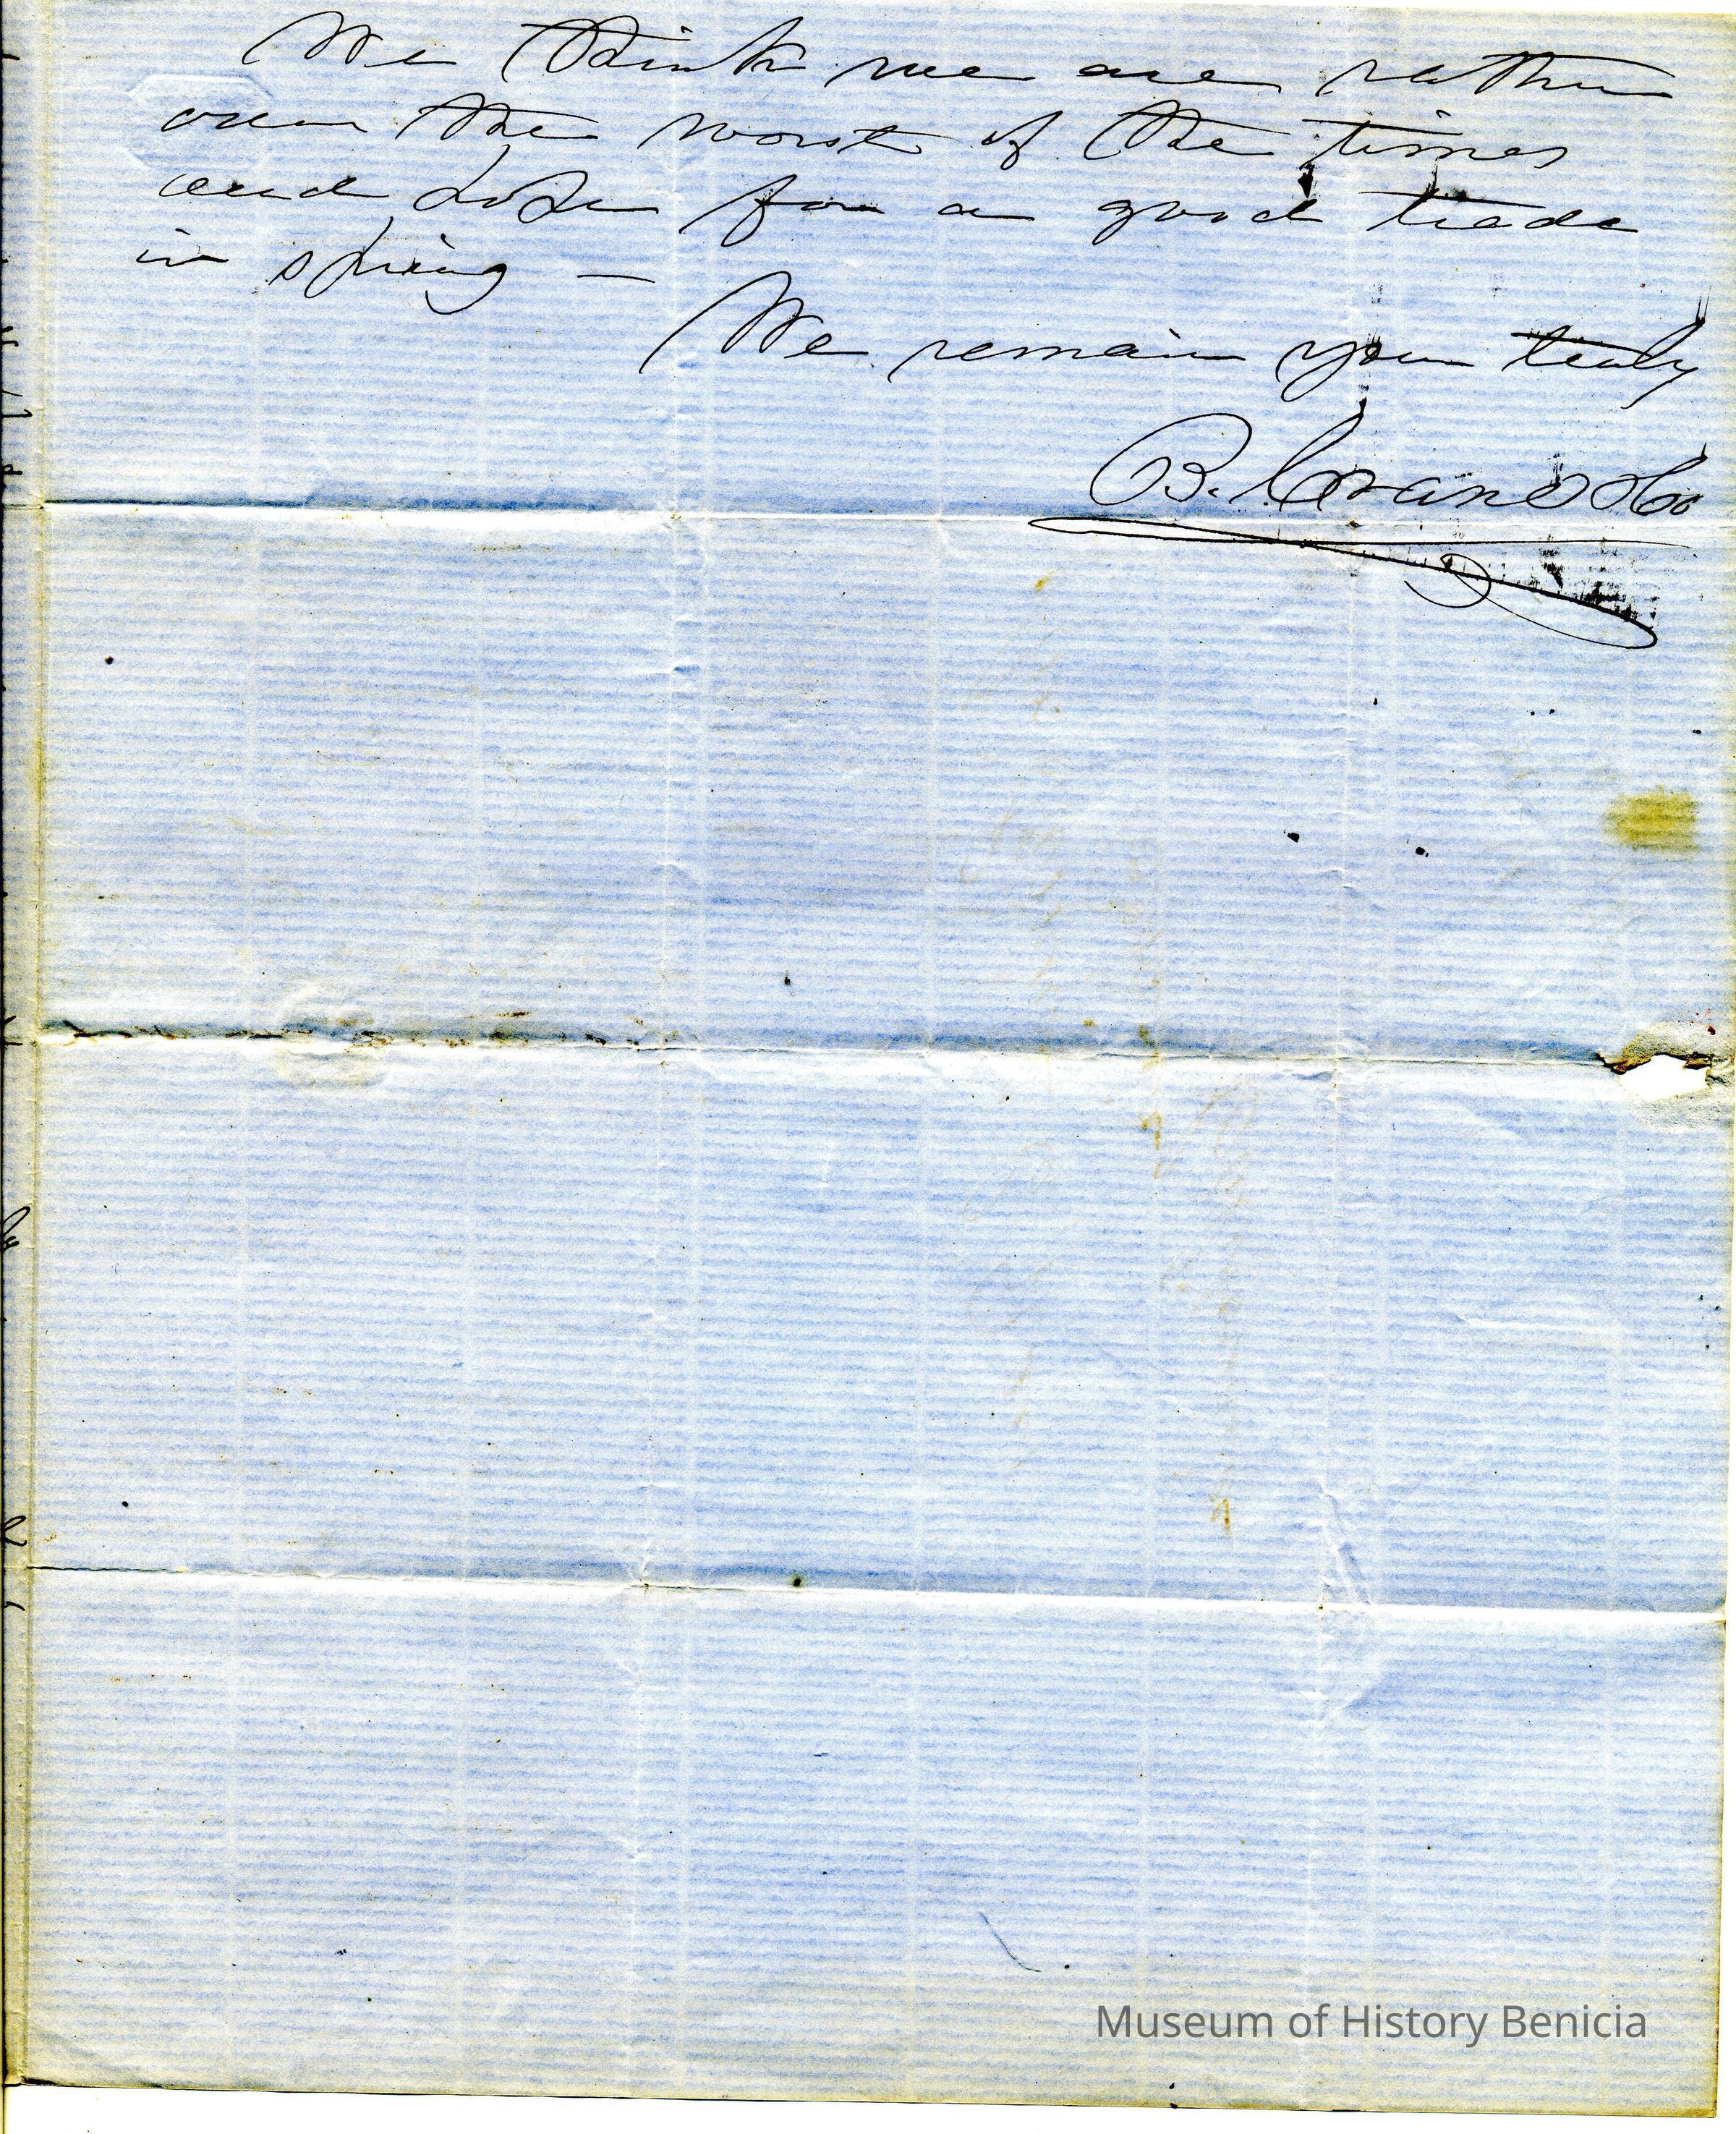 We think we are rather
over the worst of the times
and look for a good trade
in spring —
We remain your truly
B. Crane & Co
Museum of History Benicia